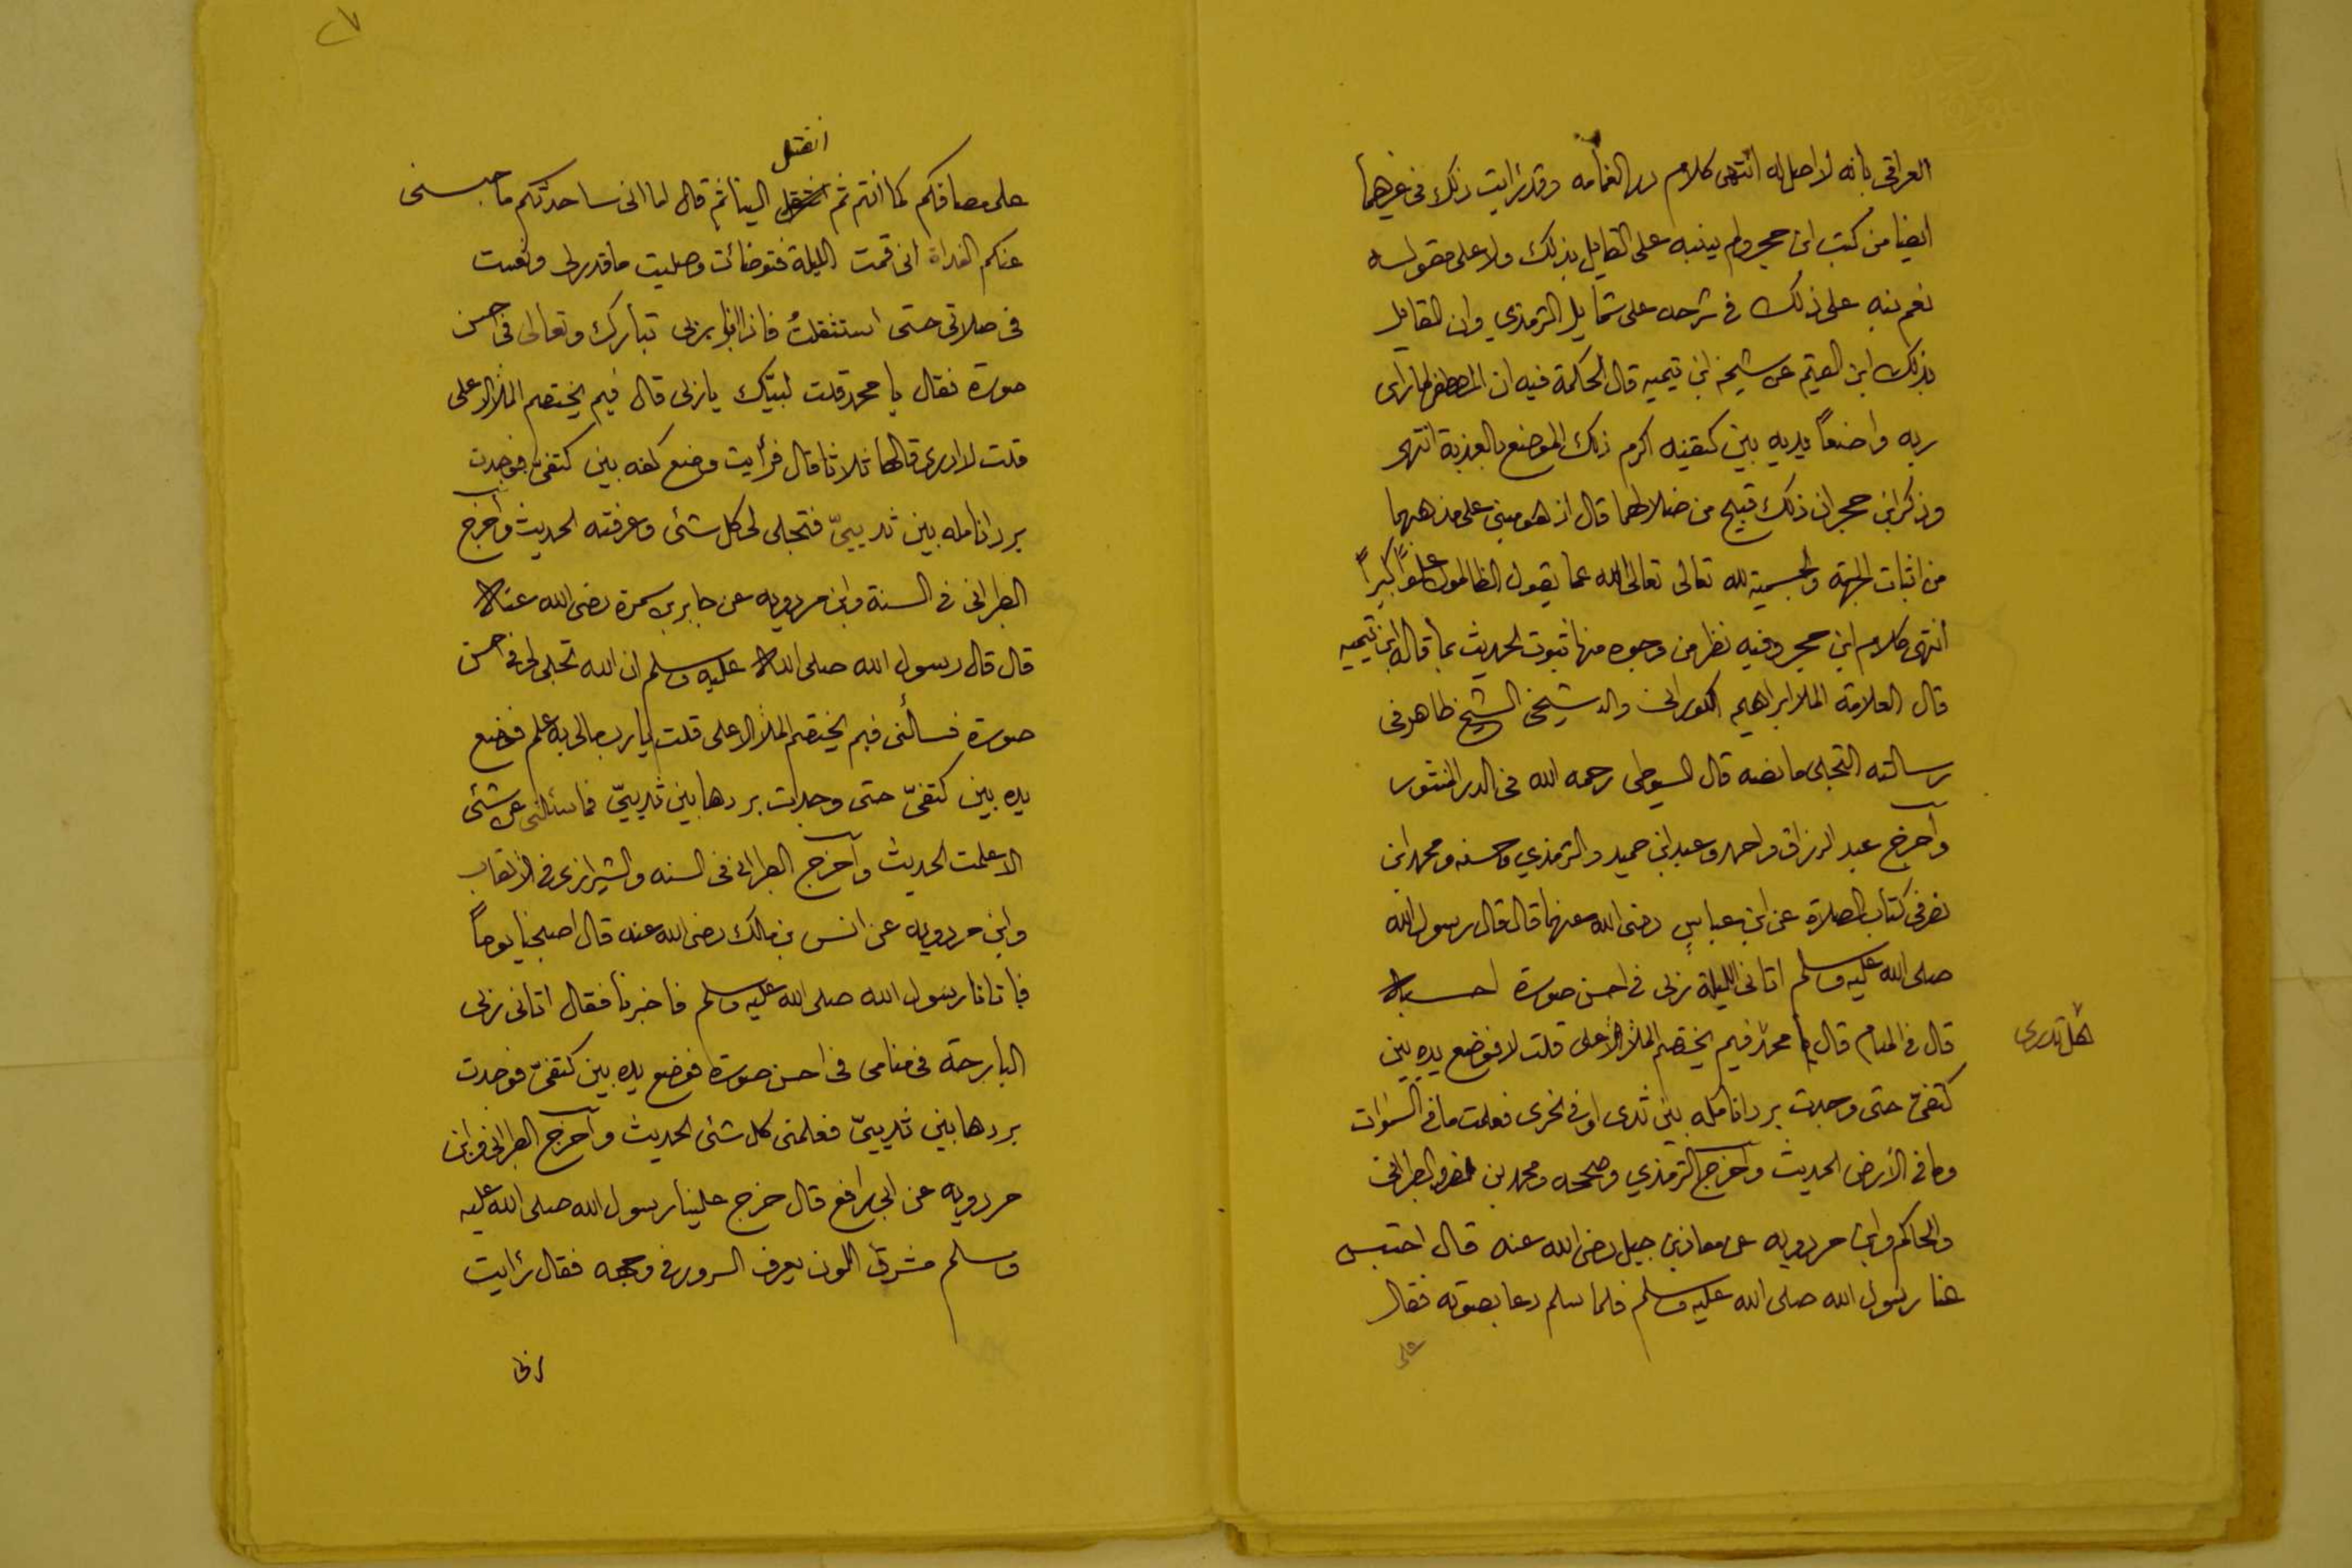 العراقي بانه لا اصل له انتهى كلام در الغمامه وقد رايت ذلك في غيرهما
ايضا من كتب ابن حجر ولم ينبه على القايل بذلك ولا على مقوله
نعم نبه على ذلك في شرحه على شمايل الترمذي وان القايل
بذلك ابن القيم عن شيخه ابن تيميه قال الحكمة فيه ان المصطفى لما راى
ربه واضعاً يديه بين كتفيه اكرم ذلك الموضع بالعذبة انتهى
وذكر ابن حجر ان ذلك قبيح من ضلالهما قال اذ هو مبني على مذهبهما
من اثبات الجهة والجسمية لله تعالى تعالى الله عما يقول الظالمون علواً كبيراً
انتهى كلام ابن حجر وفيه نظر من وجوه منها ثبوت الحديث بما قاله ابن تيميه
قال العلامة الملا ابراهيم الكوراني والد شيخي الشيخ طاهر في
رسالته التجلي ما نصه قال السيوطي رحمه الله في الدر المنثور
واخرج عبد الرزاق واحمد وعبد ابن حميد والترمذي وحسنه ومحمد ابن
نصر في كتاب الصلاة عن ابن عباس رضى الله عنهما قال قال رسول الله
صلى الله عليه وسلم اتاني الليلة ربى في احسن صورة احسبه
قال في المنام قال يا محمد فيم يختصم الملأ الاعلى قلت لا فوضع يده بين
هل تدرى
كتفيّ حتى وجدت برد انامله بين ثدى او في نحرى فعلمت ما في السموات
وما في الأرض الحديث واخرج الترمذي وصححه ومحمد بن نصر والطبراني
والحاكم وابن مردويه عن معاذ بن جبل رضى الله عنه قال احتبس
عنا رسول الله صلى الله عليه وسلم فلما سلم دعا بصوته فقال
على
انفتل
على مصافكم كما انتم ثم انفتل الينا ثم قال اما انى ساحدثكم ما حبسنى
عنكم الغداة انى قمت الليلة فتوضائت وصليت ما قدر لى ونعست
في صلاتي حتى استثقلتُ فاذا انا بربى تبارك وتعالى في احسن
صورة فقال يا محمد قلت لبيّك يا ربى قال فيم يختصم الملأ الاعلى
قلت لا ادرى قالها ثلاثا قال فرأيت وضع كفه بين كتفيّ فوجدت
برد انامله بين ثدييّ فتجلى لى كل شئ وعرفته الحديث واخرج
الطبراني في السنة وابن مردويه عن جابر بن سمرة رضى الله عنه
قال قال رسول الله صلى الله عليه وسلم ان الله تجلى لى في احسن
صورة فسألنى فيم يختصم الملأ الاعلى قلت يا رب مالى به علم فوضع
يده بين كتفيّ حتى وجدت بردها بين ثدييّ فما سئلنى عن شئ
الا علمت الحديث واخرج الطبراني في السنه والشيرازى في الالقاب
وابن مردويه عن انس بن مالك رضى الله عنه قال اصبحنا يوماً
فاتانا رسول الله صلى الله عليه وسلم فاخبرنا فقال اتانى ربى
البارحة في منامى في احسن صورة فوضع يده بين كتفيّ فوجدت
بردها بين ثدييّ فعلمنى كل شئ الحديث واخرج الطبراني وابن
مردويه عن ابى رافع قال خرج علينا رسول الله صلى الله عليه
وسلم مشرق اللون يعرف السرور في وجهه فقال رايت